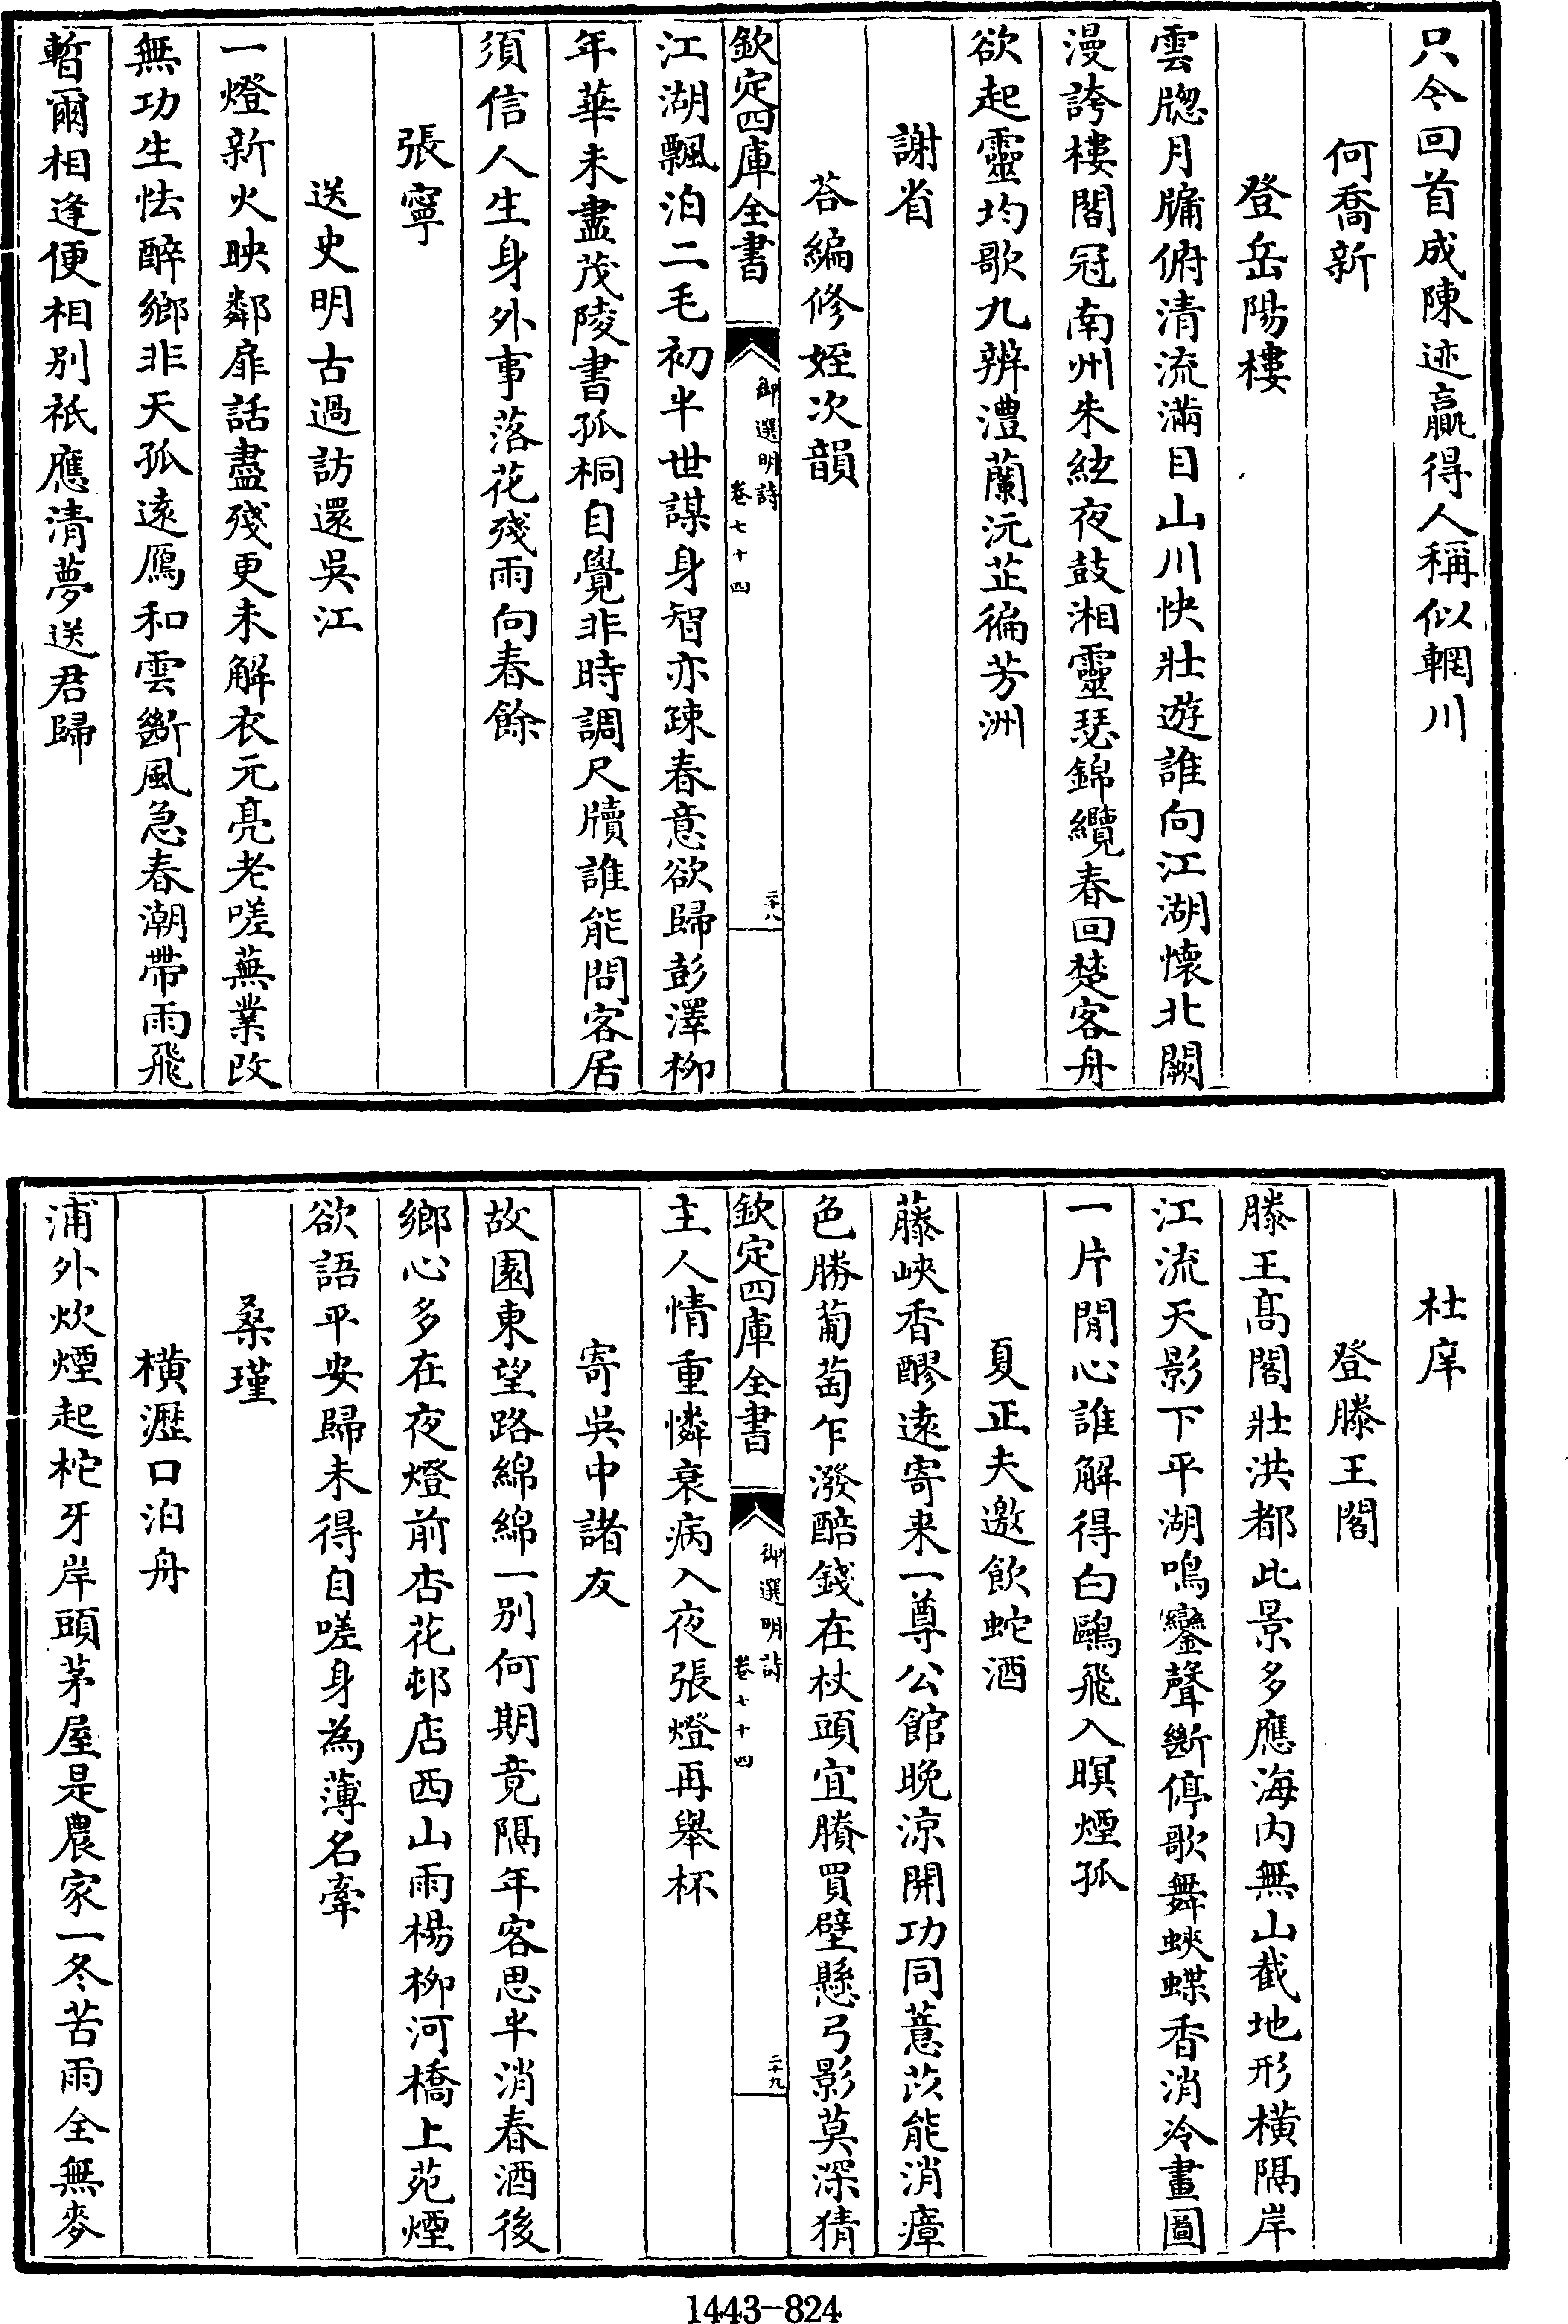 只今回首成陳迹贏得人稱似輞川
何喬新
登岳陽樓
雲牕月牖俯清流滿目山川快壯遊誰向江湖懷北闕
漫誇樓閣冠南州朱絃夜鼓湘靈瑟錦纜春回楚客舟
欲起靈均歌九辨澧蘭沅芷徧芳洲
謝省
荅編修姪次韻
欽定四庫全書
御選明詩
卷七十四
二十八
江湖飄泊二毛初半世謀身智亦疎春意欲歸彭澤柳
年華未盡茂陵書孤桐自覺非時調尺牘誰能問客居
須信人生身外事落花殘雨向春餘
張寧
送史明古過訪還吳江
一燈新火映鄰扉話盡殘更未解衣元亮老嗟蕪業改
無功生怯醉鄉非天孤遠鴈和雲斷風急春潮帶雨飛
暫爾相逢便相别祇應清夢送君歸
杜庠
登滕王閣
滕王髙閣壯洪都此景多應海内無山截地形横隔岸
江流天影下平湖鳴鑾聲斷停歌舞蛺蝶香消冷畫圖
一片閒心誰解得白鷗飛入暝煙孤
夏正夫邀飲蛇酒
藤峽香醪逺寄来一尊公館晚涼開功同薏苡能消瘴
色勝葡萄乍潑醅錢在杖頭宜賸買壁懸弓影莫深猜
欽定四庫全書
御選明詩
卷七十四
二十九
主人情重憐衰病入夜張燈再舉杯
寄吳中諸友
故園東望路綿綿一别何期竟隔年客思半消春酒後
鄉心多在夜燈前杏花邨店西山雨楊柳河橋上苑煙
欲語平安歸未得自嗟身為薄名牽
桑瑾
横瀝口泊舟
浦外炊煙起柁牙岸頭茅屋是農家一冬苦雨全無麥
1443-824